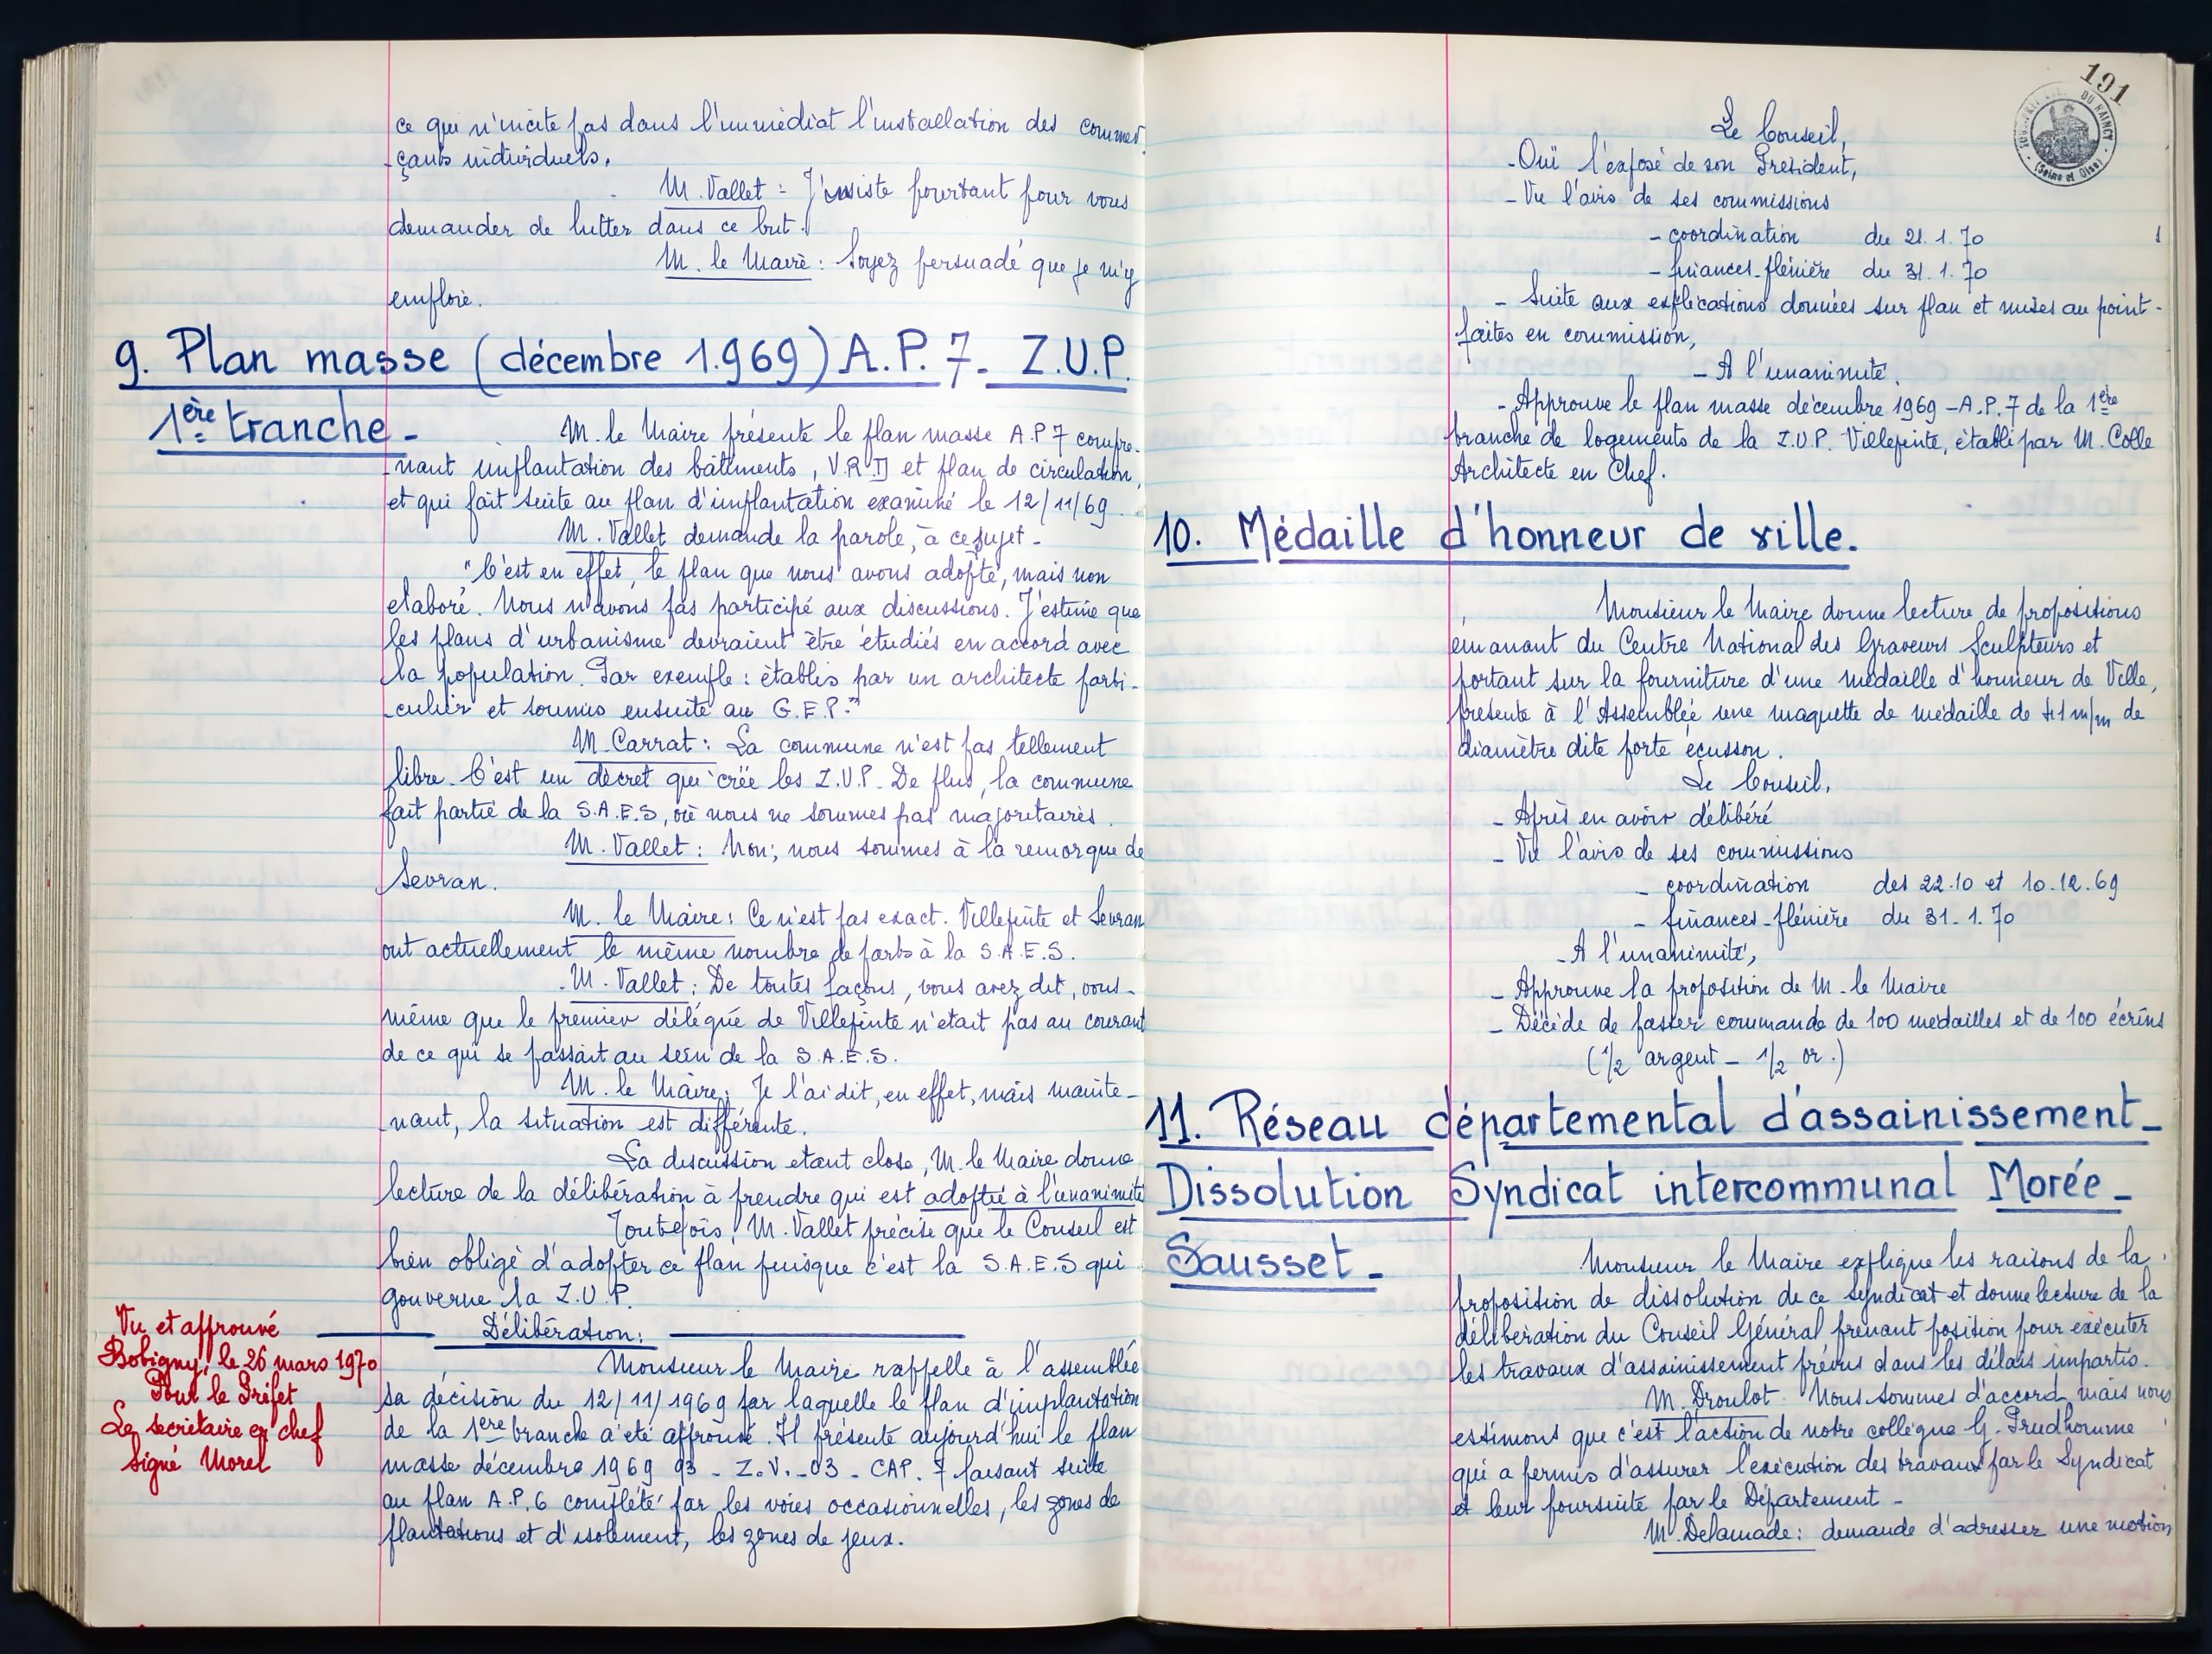 ce qui n'incite pas dans l'immédiat l'installation des commer
-çants individuels.
M. Vallet : J'insiste pourtant pour vous
demander de lutter dans ce but.
M. le Maire : Soyez persuadé que je m'y
emploie.
9. Plan masse (décembre 1.969) A.P. 7 - Z.U.P.
1ère tranche -
M. le Maire présente le plan masse A.P 7 compre-
-nant implantation des bâtiments, V.R.D et plan de circulation,
et qui fait suite au plan d'implantation examiné le 12/11/69.
M. Vallet demande la parole, à ce sujet -
"C'est en effet, le plan que nous avons adopté, mais non
elaboré. Nous n'avons pas participé aux discussions. J'estime que
les plans d'urbanisme devraient être étudiés en accord avec
la population. Par exemple : établis par un architecte parti-
-culier et soumis ensuite au G.E.P."
M. Carrat : La commune n'est pas tellement
libre. C'est un décret qui crée les Z.U.P. De plus, la commune
fait partie de la S.A.E.S, où nous ne sommes pas majoritaires.
M. Vallet : Non; nous sommes à la remorque de
Sevran.
M. le Maire : Ce n'est pas exact. Villepinte et Sevran
ont actuellement le même nombre de parts à la S.A.E.S.
M. Vallet : De toutes façons, vous avez dit, vous-
même que le premier délégué de Villepinte n'était pas au courant
de ce qui se passait au sein de la S.A.E.S.
M. le Maire : Je l'ai dit, en effet, mais mainte-
-nant, la situation est différente.
La discussion etant close, M. le Maire donne
lecture de la délibération à prendre qui est adoptée à l'unanimité
Toutefois, M. Vallet précise que le Conseil est
bien obligé d'adopter ce plan puisque c'est la S.A.E.S qui
gouverne la Z.U.P.
Délibération :
Vu et approuvé
Bobigny, le 26 mars 1970
Pour le Préfet
Le secrétaire en chef
signé Morel
Monsieur le Maire rappelle à l'assemblée
sa décision du 12/11/1969 par laquelle le plan d'implantation
de la 1ère tranche a été approuvé. Il présente aujourd'hui le plan
masse décembre 1969 93 - Z.V. - 03 - CAP. 7 faisant suite
au plan A.P.6 complété par les voies occasionnelles, les zones de
plantations et d'isolement, les zones de jeux.
191
DU RAINCY
(Seine et Oise)
Le Conseil,
- Ouï l'exposé de son Président,
- Vu l'avis de ses commissions
- coordination du 21.1.70
- finances-plénière du 31.1.70
- Suite aux explications données sur plan et mises au point -
faites en commission,
- A l'unanimité.
- Approuve le plan masse décembre 1969 - A.P. 7 de la 1ère
tranche de logements de la Z.U.P. Villepinte, établi par M. Colle
Architecte en Chef.
10. Médaille d'honneur de ville.
Monsieur le Maire donne lecture de propositions
émanant du Centre National des Graveurs Sculpteurs et
portant sur la fourniture d'une médaille d'honneur de Ville,
présente à l'Assemblée une maquette de médaille de 41 m/m de
diamètre dite porte écusson.
Le Conseil,
- Après en avoir délibéré
- Vu l'avis de ses commissions
- coordination des 22.10 et 10.12.69
- finances-plénière du 31-1.70
- A l'unanimité,
- Approuve la proposition de M. le Maire
- Décide de passer commande de 100 médailles et de 100 écrins
(1/2 argent - 1/2 or.)
11. Réseau départemental d'assainissement -
Dissolution Syndicat intercommunal Morée -
Sausset -
Monsieur le Maire explique les raisons de la
proposition de dissolution de ce Syndicat et donne lecture de la
délibération du Conseil Général prenant position pour exécuter
les travaux d'assainissement prévus dans les délais impartis.
M. Droulot. Nous sommes d'accord, mais nous
estimons que c'est l'action de notre collègue G. Prudhomme
qui a permis d'assurer l'exécution des travaux par le Syndicat
et leur poursuite par le Département -
M. Delamade : demande d'adresser une motion